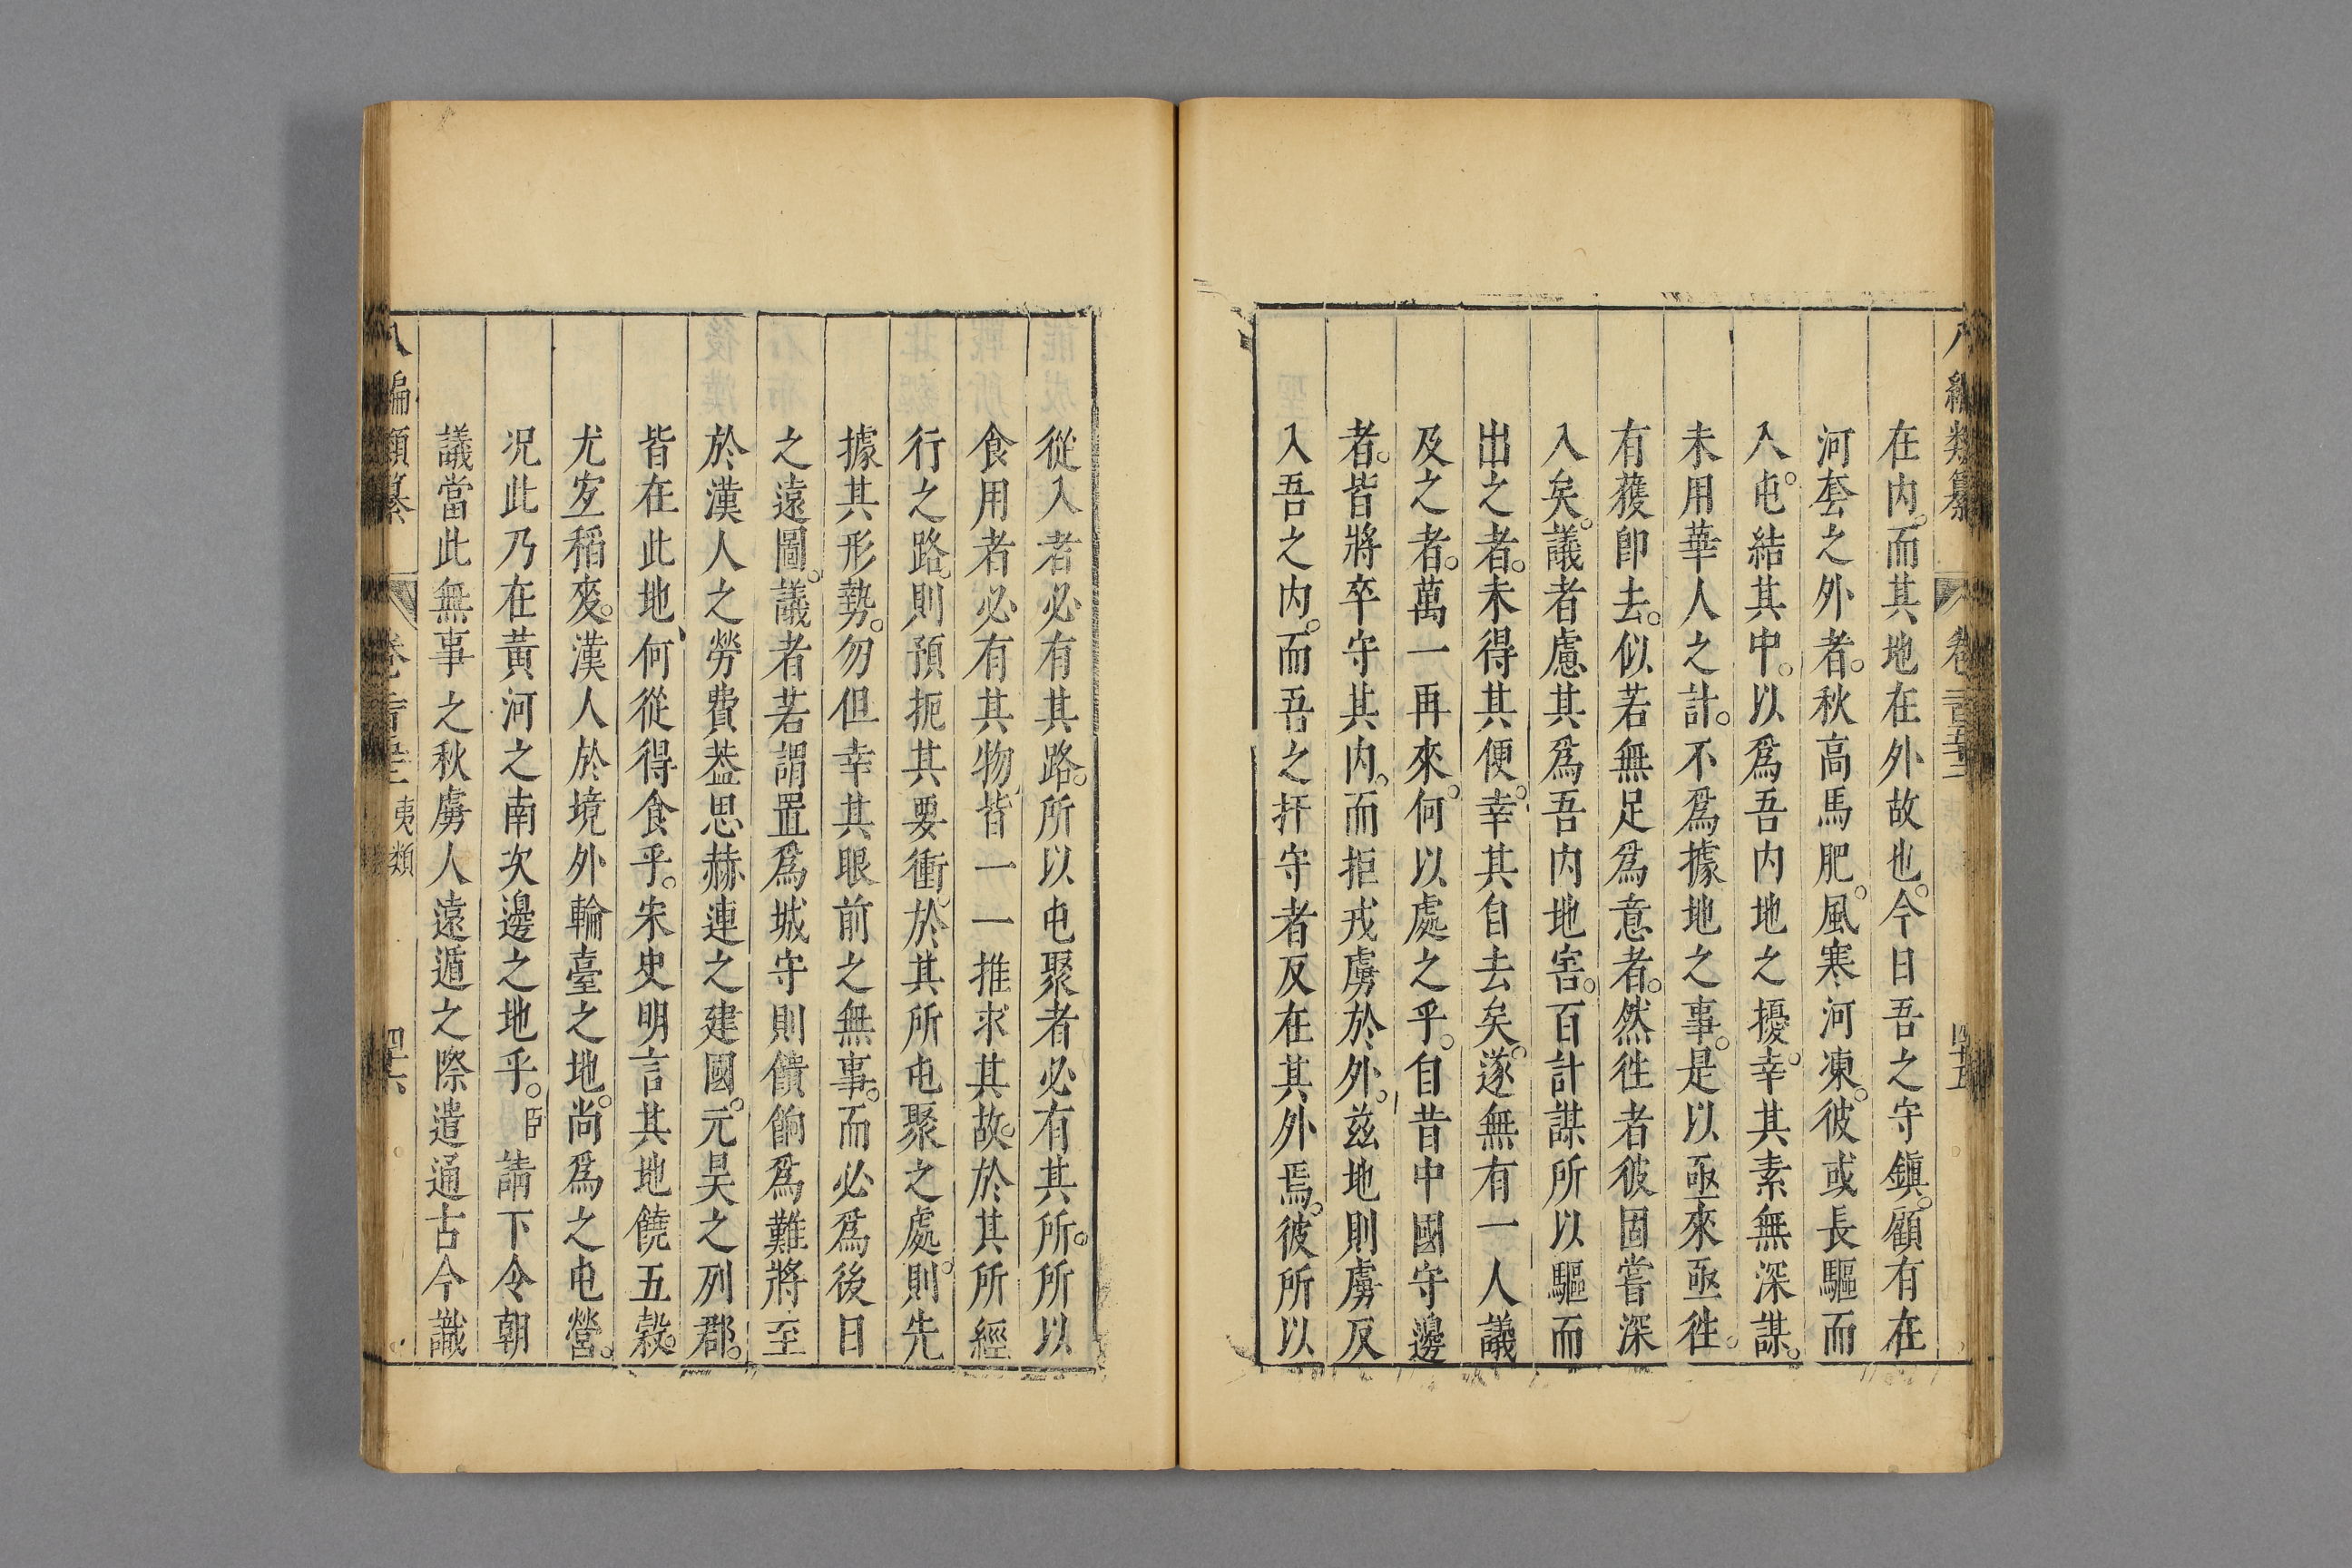 在内。而其地在外故也。今日吾之守鎮。顧有在
河套之外者。秋高馬肥。風寒河凍。彼或長驅而
入。屯結其中。以爲吾内地之擾。幸其素無深謀。
未用華人之計。不爲據地之事。是以亟來亟徃。
有獲卽去。似若無足爲意者。然徃者彼固嘗深
入矣。議者慮其爲吾内地害。百計謀所以驅而
出之者。未得其便。幸其自去矣。遂無有一人議
及之者。萬一再來。何以處之乎。自昔中國守邊
者。皆將卒守其内。而拒戎虜於外。兹地則虜反
入吾之内。而吾之扞守者反在其外焉。彼所以
從入者必有其路。所以屯聚者必有其所。所以
食用者必有其物、皆一一推求其故。於其所經
行之路。則預扼其要衝。於其所屯聚之處。則先
據其形勢。勿但幸其眼前之無事。而必爲後日
之遠圖。議者若謂置爲城守則饋餉爲難將至
於漢人之勞費葢思赫連之建國。元昊之列郡。
皆在此地、何從得食乎。宋史明言其地饒五榖。
尤宜稻麥。漢人於境外輪臺之地。尚爲之屯營。
况此乃在黄河之南次邊之地乎。臣請下令朝
議當此無事之秋虜人遠遁之際遣通古今識
八編類纂
夷類